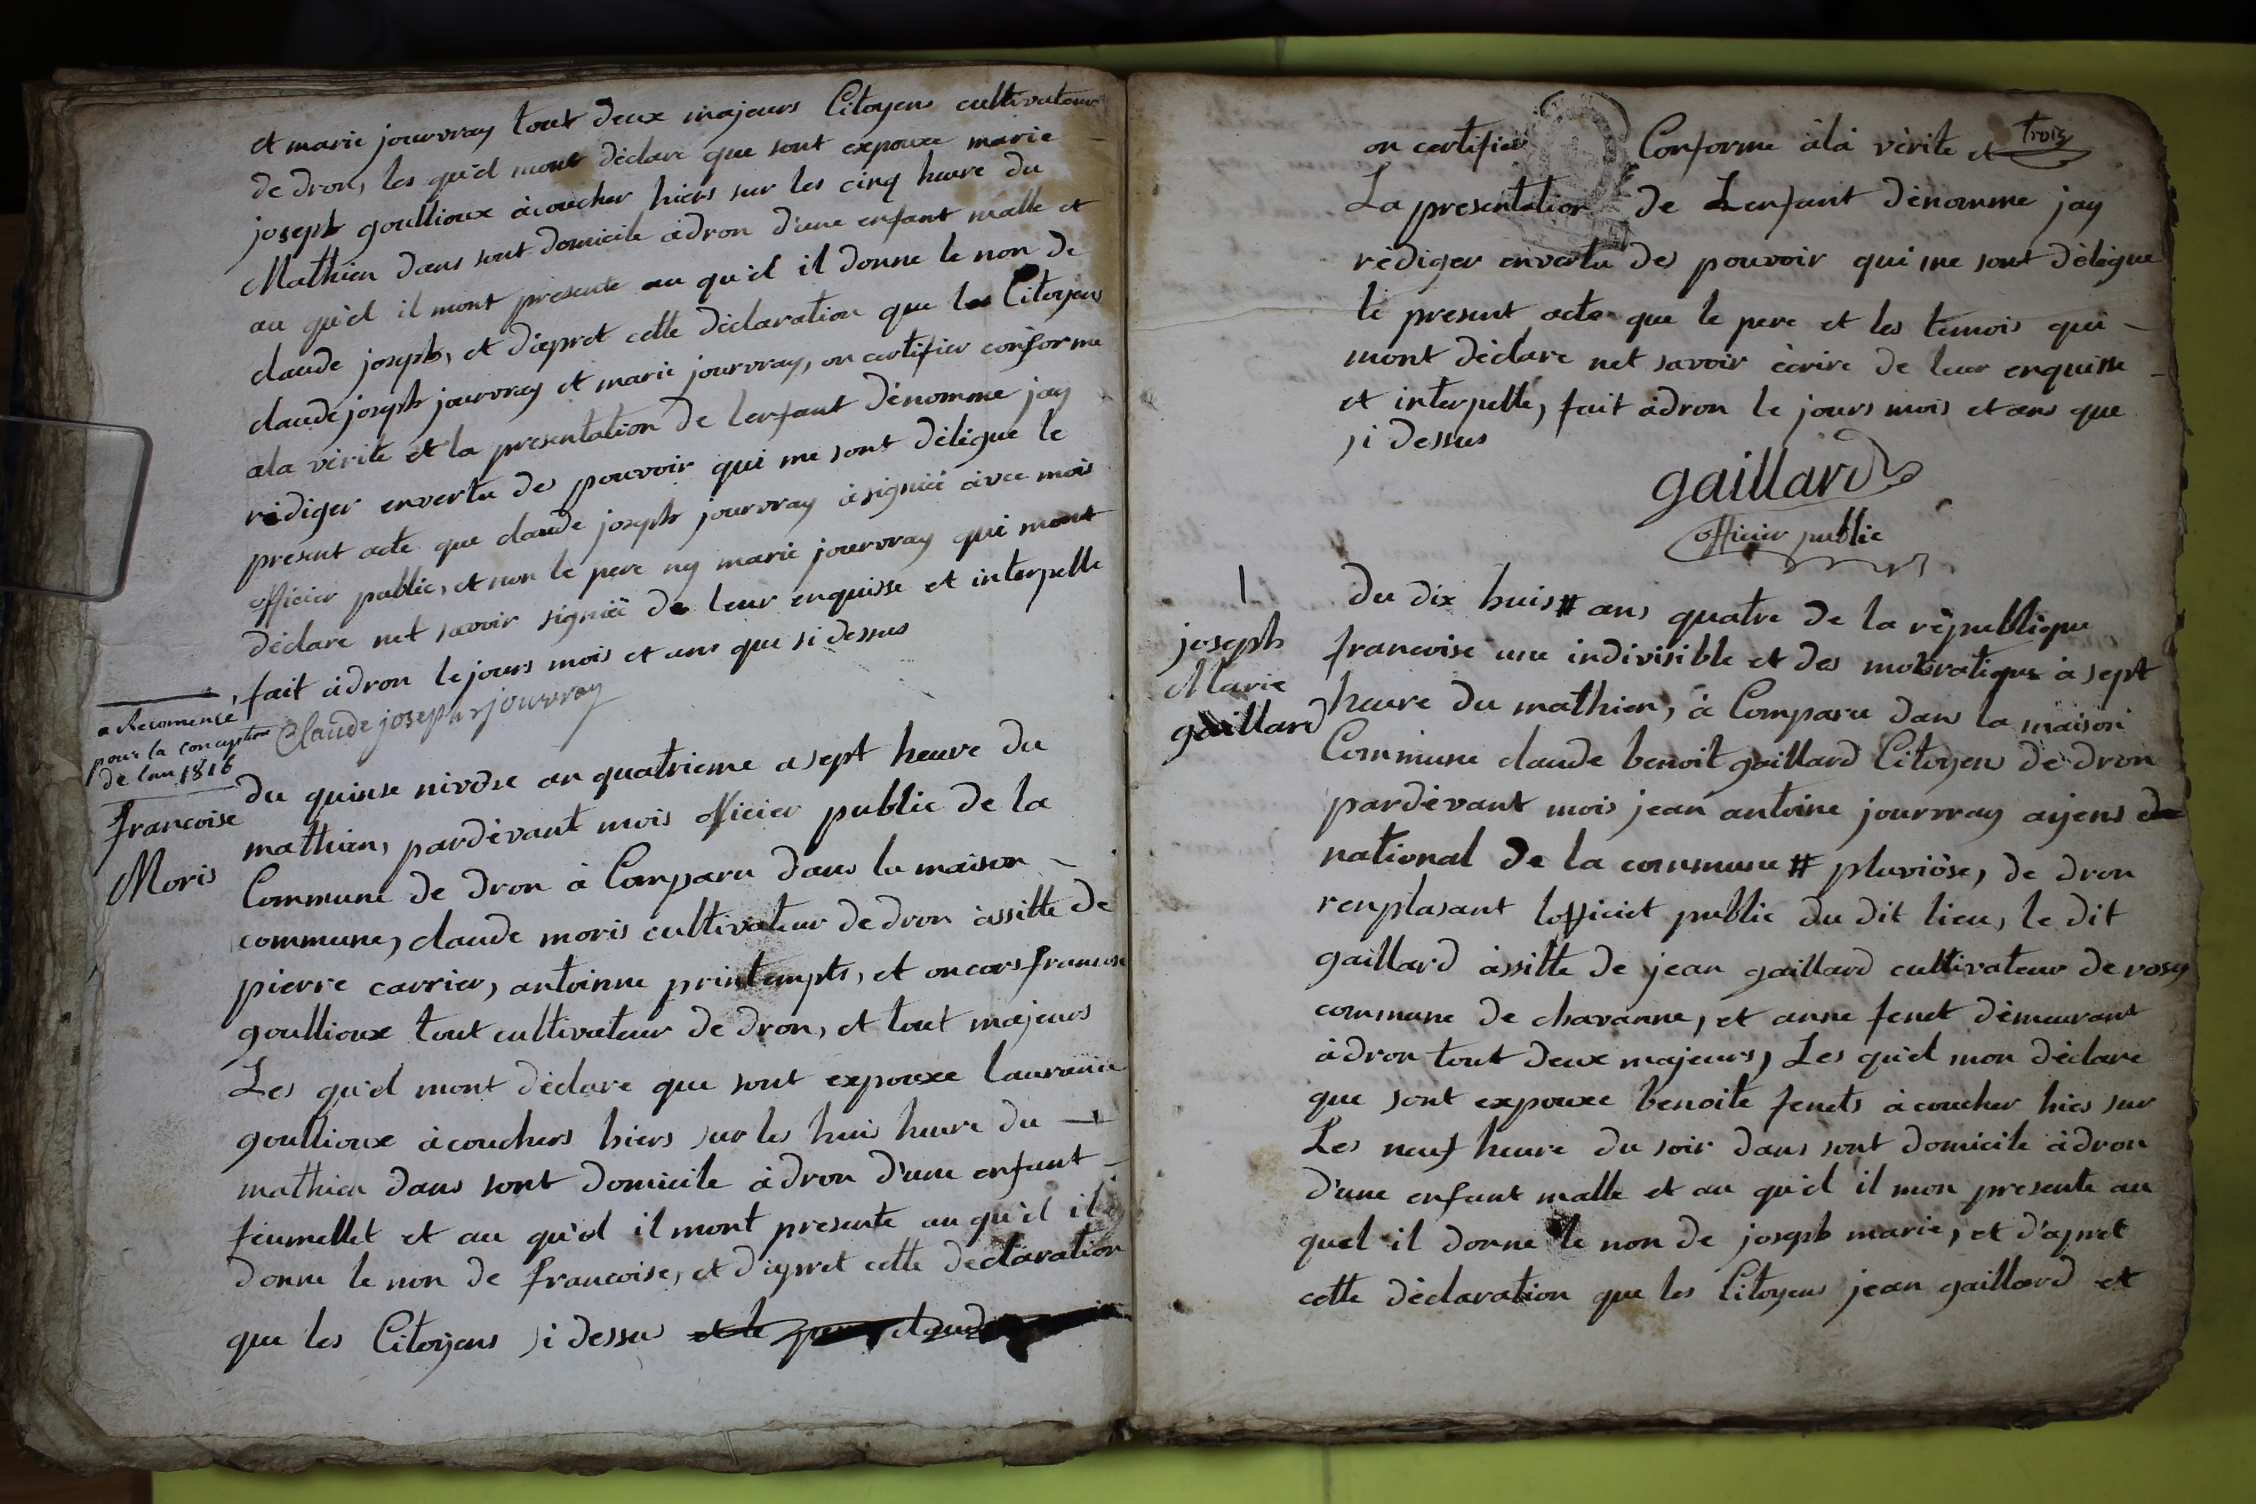 et marie jourvray tout deux majeurs Citoyens cultivateur
de dron, les qu'el mont déclare que sont expouxe marie
joseph goullioux àcoucher hiers sur les cinq heure du
Mathien dans sont domicile àdron d'une enfant malle et
au qu'el il mont presente au qu'el il donne le non de
claude joseph, et d'apret cette déclaration que les Citoyens
claude joseph jourvray et marie jourvray, on certifier conforme
ala vérité et la presentation de lenfant dénomme jay
rédiger envertu des pouvoir qui me sont délégue le
present acte que claude joseph jourvray à signiéé avec mois
officier public, et non le pere ny marie jourvray qui mont
déclare net savoir signiéé de leur enquisse et interpelle
, fait àdron le jours mois et ans que si dessus
Claude joseph jourvray
a Recomencé
pour la conception
de lan 1816
francoise
Moris
du quinse nivôse an quatrieme a sept heure du
mathien, pardévant mois officier public de la
Commune de dron à Comparu dans la maison
commune, claude moris cultivateur de dron àssitte de
pierre carrier, antoinne printempts, et oncors francoise
goullioux tout cultivateur de dron, et tout majeurs
Les qu'el mont déclare que sont expouxe laurance
goullioux àcouchers hiers sur les huis heure du
mathien dans sont domicile àdron d'une enfant
feumellet et au qu'el il mont presente au qu'el il
donne le non de francoise, et d'apret cette declaration
que les Citoyens si dessus et le pere claude
trois
on certifier Conforme àlà vérité et
La presentation de Lenfant dénomme jay
rédiger envertu des pouvoir qui me sont délégue
le present acte que le pere et les temois qui
mont déclare net savoir écrire de leur enquisse
et interpelle, fait àdron le jours mois et ans que
si dessus
gaillard
officier public
1
joseph
Marie
gaillard
du dix huis # ans quatre de la république
francoise une indivisible et des à sept
heure du mathien, à Comparu dans la maison
Commune claude benoit gaillard Citoyens de dron
pardévant mois jean antoine jourvray ajens
national de la commune # pluviôse, de dron
renplasant lofficiet public du dit lieu, le dit
gaillard àssitte de jean gaillard cultivateur de rosy
commune de chavanne, et anne fenet démeurant
àdron tout deux majeurs, Les qu'el mon déclare
que sont expouxe benoite fenets àcoucher hies sur
Les neuf heure du soir dans sont domicile àdron
d'une enfant malle et au qu'el il mon presente au
quel il donne le non de joseph marie, et d'apret
cette déclaration que les Citoyens jean gaillard et